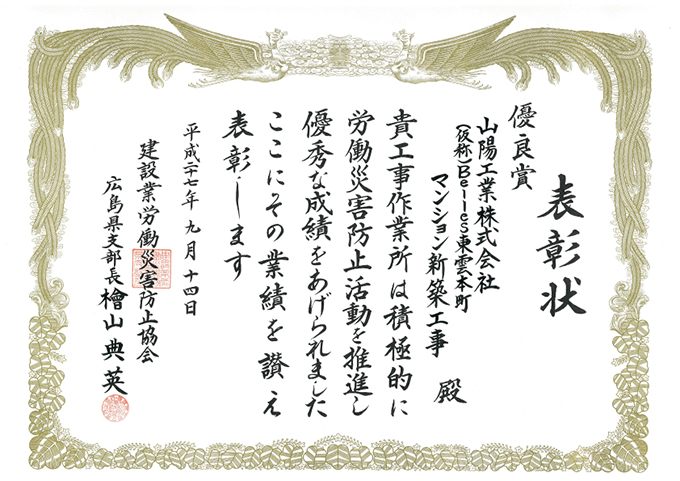 表彰状
優良賞
山陽工業株式会社
(仮称)Belles東雲本町
マンション新築工事 殿
貴工事作業所は積極的に
労働災害防止活動を推進し
優秀な成績をあげられました
ここにその業績を讃え
表彰します
平成二十七年 九月 十四日
建設業労働災害防止協会
広島県支部長 檜山典英